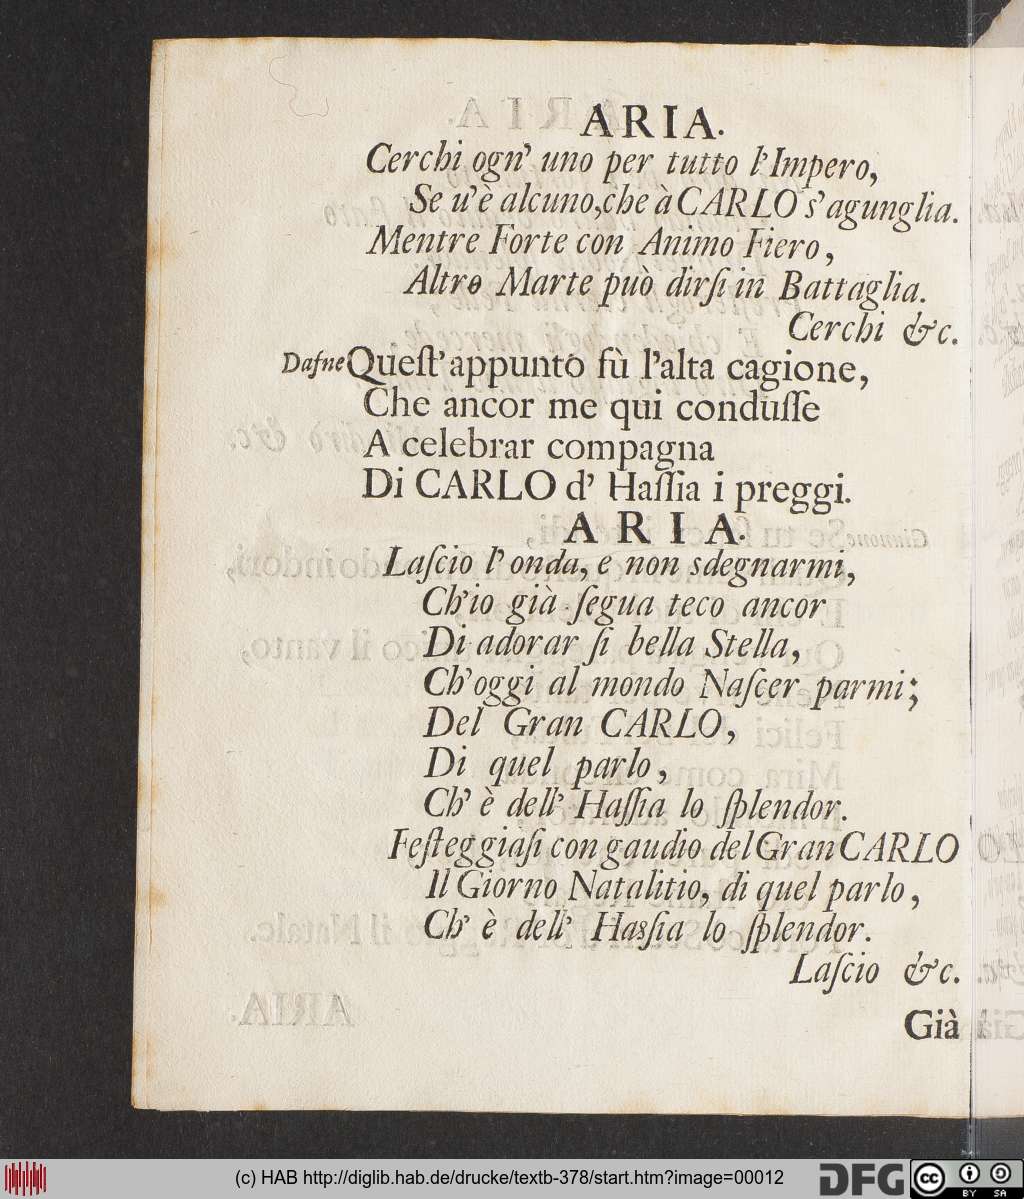 ARIA.
Cerchi ogn' uno per tutto l'Impero,
Se u'è alcuno, che à CARLO s'agunglia.
Mentre Forte con Animo Fiero,
Altro Marte può dirſi in Battaglia.
Cerchi &c.
Dafne Queſt'appunto fù l'alta cagione,
Che ancor me qui conduſſe
A celebrar compagna
Di CARLO d' Haſſia i preggi.
ARIA.
Laſcio l'onda, e non sdegnarmi,
Ch'io già ſegua teco ancor
Di adorar ſi bella Stella,
Ch'oggi al mondo Naſcer parmi;
Del Gran CARLO,
Di quel parlo,
Ch' è dell' Haſſia lo ſplendor.
Feſteggiàſi con gaudio del Gran CARLO
Il Giorno Natalitio, di quel parlo,
Ch' è dell' Hasſia lo ſplendor.
Laſcio &c.
Già
(c) HAB http://diglib.hab.de/drucke/textb-378/start.htm?image=00012
DFG
cc
BY SA